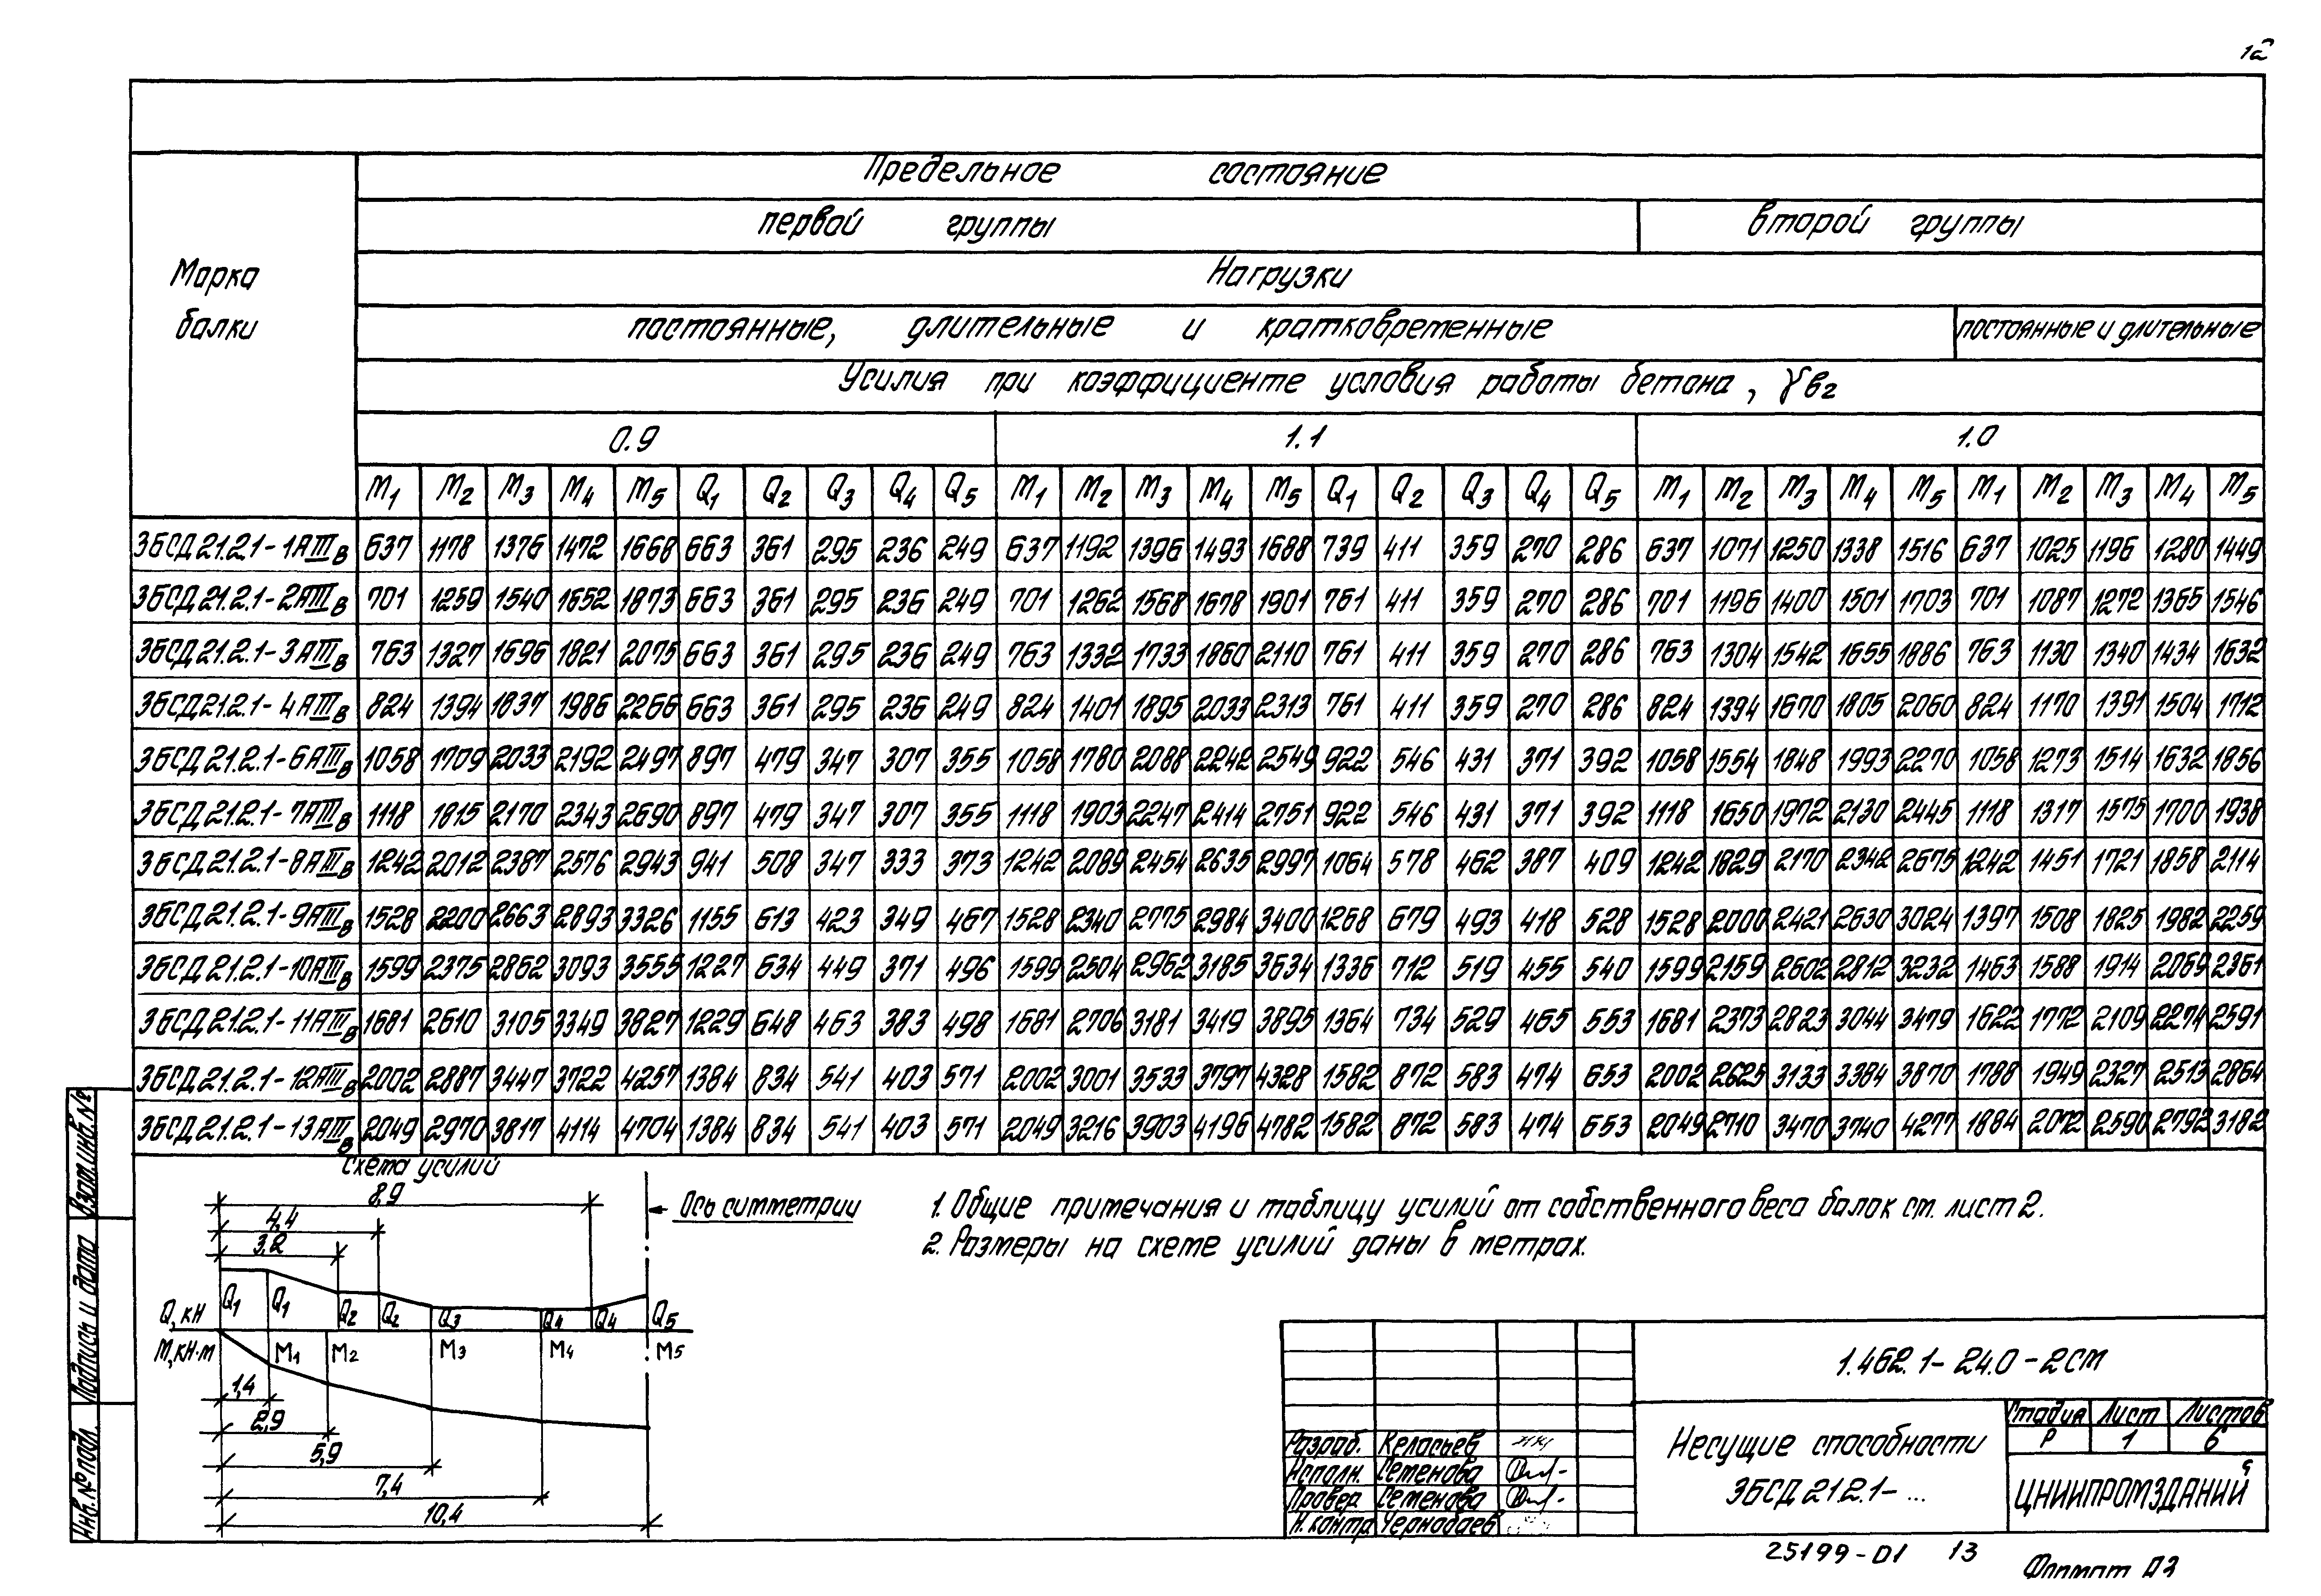 12
Предельное состояние
первой группы
второй группы
Марка
балки
Нагрузки
постоянные, длительные и кратковременные
постоянные и длительные
Усилия при коэффициенте условия работы бетона, γв2
0.9 1.1 1.0
М1 М2 М3 М4 М5 Q1 Q2 Q3 Q4 Q5 М1 М2 М3 М4 М5 Q1 Q2 Q3 Q4 Q5 М1 М2 М3 М4 М5 М1 М2 М3 М4 М5
3БСД21.2.1-1АIIIв 637 1178 1376 1472 1668 663 361 295 236 249 637 1192 1396 1493 1688 739 411 359 270 286 637 1071 1250 1338 1516 637 1025 1196 1280 1449
3БСД21.2.1-2АIIIв 701 1259 1540 1652 1873 663 361 295 236 249 701 1262 1568 1678 1901 761 411 359 270 286 701 1196 1400 1501 1703 701 1087 1272 1365 1546
3БСД21.2.1-3АIIIв 763 1327 1696 1821 2075 663 361 295 236 249 763 1332 1733 1860 2110 761 411 359 270 286 763 1304 1542 1655 1886 763 1130 1340 1434 1632
3БСД21.2.1-4АIIIв 824 1394 1837 1986 2266 663 361 295 236 249 824 1401 1895 2033 2313 761 411 359 270 286 824 1394 1670 1805 2060 824 1170 1391 1504 1712
3БСД21.2.1-6АIIIв 1058 1709 2033 2192 2497 897 479 347 307 355 1058 1780 2088 2242 2549 922 546 431 371 392 1058 1554 1848 1993 2270 1058 1273 1514 1632 1856
3БСД21.2.1-7АIIIв 1118 1815 2170 2343 2690 897 479 347 307 355 1118 1903 2247 2414 2751 922 546 431 371 392 1118 1650 1972 2130 2445 1118 1317 1575 1700 1938
3БСД21.2.1-8АIIIв 1242 2012 2387 2576 2943 941 508 347 333 373 1242 2089 2454 2635 2997 1064 578 462 387 409 1242 1829 2170 2342 2675 1242 1451 1721 1858 2114
3БСД21.2.1-9АIIIв 1528 2200 2663 2893 3326 1155 613 423 349 467 1528 2340 2775 2984 3400 1268 679 493 418 528 1528 2000 2421 2630 3024 1397 1508 1825 1982 2259
3БСД21.2.1-10АIIIв 1599 2375 2862 3093 3555 1227 634 449 371 496 1599 2504 2962 3185 3634 1336 712 519 455 540 1599 2159 2602 2812 3232 1463 1588 1914 2069 2361
3БСД21.2.1-11АIIIв 1681 2610 3105 3349 3827 1229 648 463 383 498 1681 2706 3181 3419 3895 1364 734 529 465 553 1681 2373 2823 3044 3479 1622 1772 2109 2274 2591
3БСД21.2.1-12АIIIв 2002 2887 3447 3722 4257 1384 834 541 403 571 2002 3001 3533 3797 4328 1582 872 583 474 653 2002 2625 3133 3384 3870 1788 1949 2327 2513 2864
3БСД21.2.1-13АIIIв 2049 2970 3817 4114 4704 1384 834 541 403 571 2049 3216 3903 4196 4782 1582 872 583 474 653 2049 2710 3470 3740 4277 1884 2072 2590 2792 3182
Схема усилий
8,9
4,4
3,2
Ось симметрии
Q1 Q1 Q2 Q2 Q3 Q4 Q4 Q5
Q, кН
М, кН·м
М1 М2 М3 М4 М5
1,4
2,9
5,9
7,4
10,4
1. Общие примечания и таблицу усилий от собственного веса балок см. лист 2.
2. Размеры на схеме усилий даны в метрах.
Взам.инв.№
Подпись и дата
Инв.№ подл.
1.462.1-24.0-2СМ
Разраб. Келасьев
Исполн. Семенова
Провер. Семенова
Н.контр. Чернобаев
Несущие способности
3БСД21.2.1-...
Стадия Лист Листов
Р 1 6
ЦНИИПРОМЗДАНИЙ
25199-01 13
Формат А3